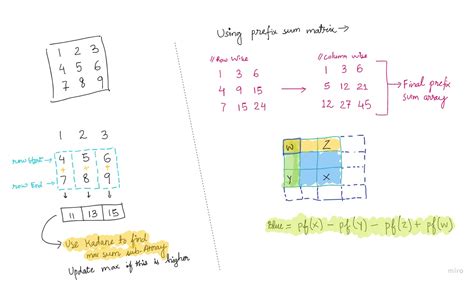 1 2 3
4 5 6
7 8 9
1 2 3
row Start
4 5 6
+ + +
row End
7 8 9
11 13 15
Use Kadane to find
max sum sub-Array
Update max if this is higher
Using prefix sum matrix →
// Row Wise
1 3 6
4 9 15
7 15 24
// Column Wise
1 3 6
5 12 21
12 27 45
Final prefix
sum array
W Z
Y X
Blue = pf(X) - pf(Y) - pf(Z) + pf(W)
miro